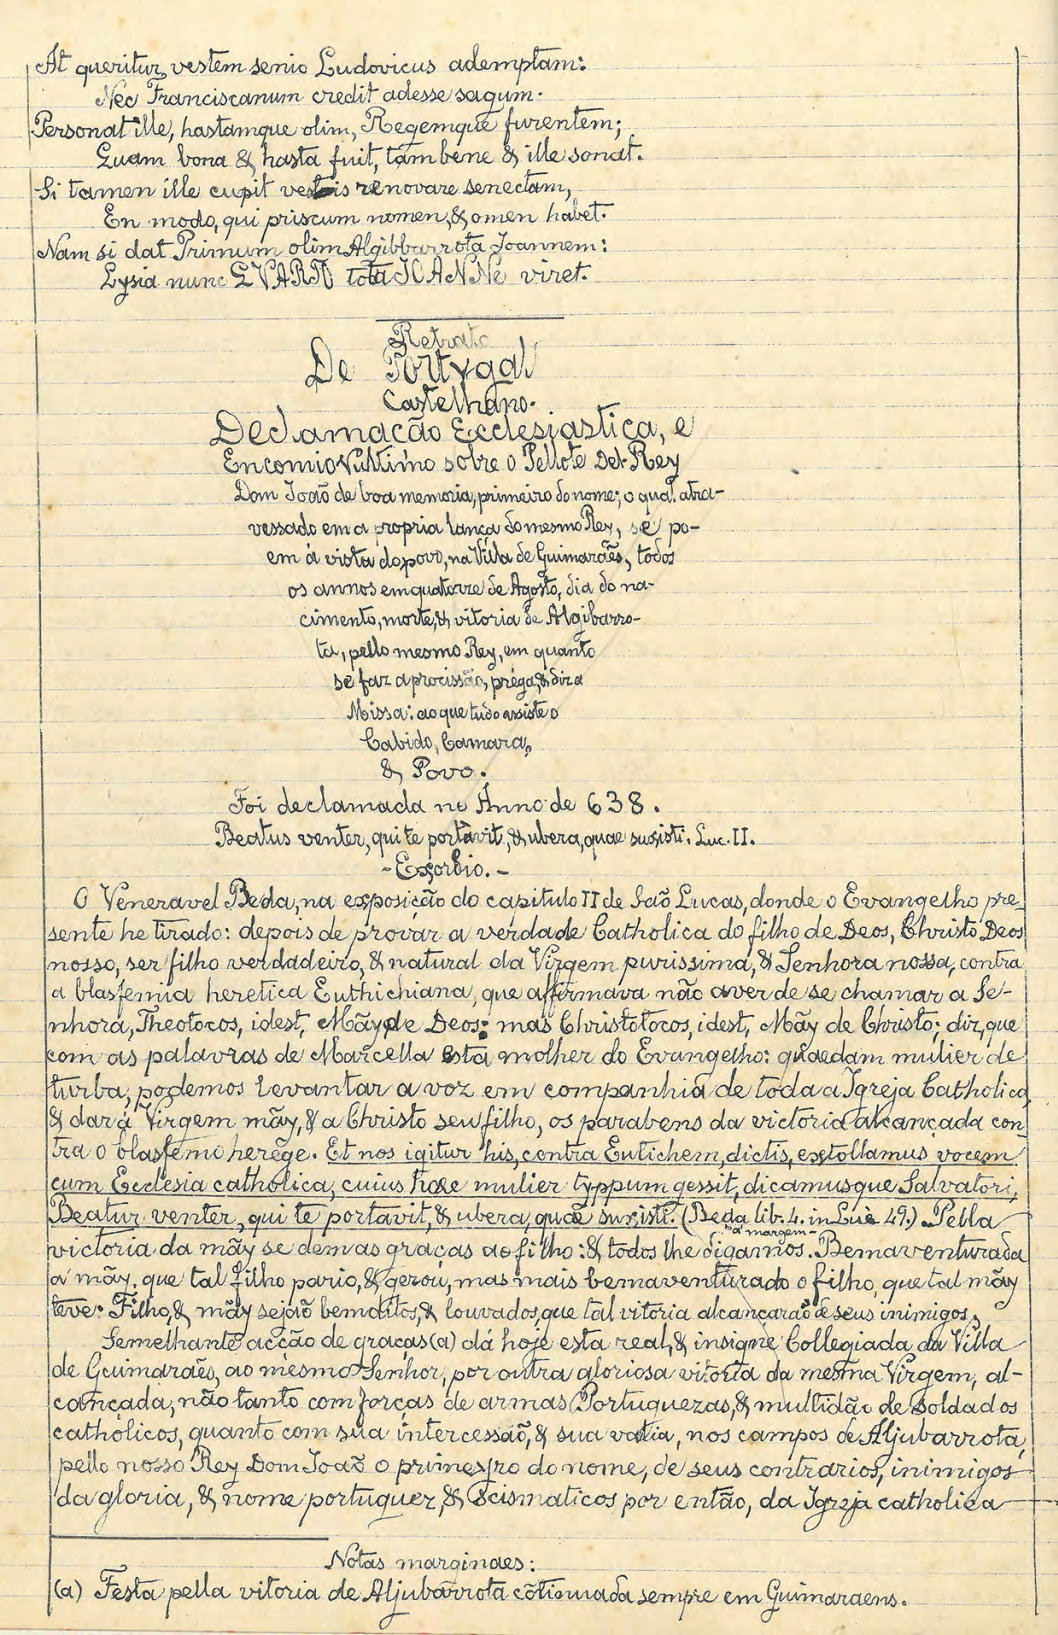 At queritur, vestem senio Ludovicus ademptam:
Nec Franciscanum credit adesse sagum.
Personat ille, hastamque olim, Regemque furentem;
Quam bona & hasta fuit, tam bene & ille sonat.
Si tamen ille cupit vestis renovare senectam,
En modo, qui priscum nomen, & omen habet.
Nam si dat Primum olim Algibbarrota Joannem:
Lysia nunc QVARTO tota JOANNe viret.
Retrato
De Portvgal
Castelhano.
Declamação Ecclesiastica, e
Encomio Vultimo sobre o Pellote Del-Rey
Dom João de boa memoria, primeiro do nome; o qual atra-
vessado em a propria lança do mesmo Rey, se po-
em à vista do povo, na Villa de Guimarães, todos
os annos em quatorze de Agosto, dia do na-
cimento, morte, & vitoria de Algibarro-
ta, pello mesmo Rey, em quanto
se faz a procissão, préga, & diz a
Missa: ao que tudo assiste o
Cabido, Camara,
& Povo.
Foi declamada no Anno de 638.
Beatus venter, qui te portavit, & ubera, quae suxisti. Luc. II.
- Exordio. -
O Veneravel Beda, na exposição do capitulo II de São Lucas, donde o Evangelho pre-
sente he tirado: depois de provar a verdade Catholica do filho de Deos, Christo Deos
nosso, ser filho verdadeiro, & natural da Virgem purissima, & Senhora nossa, contra
a blasfemia heretica Euthichiana, que affirmava não aver de se chamar a Se-
nhora, Theotocos, idest, Mãy de Deos: mas Christotocos, idest, Mãy de Christo; diz, que
com as palavras de Marcella esta molher do Evangelho: quaedam mulier de
turba, podemos levantar a voz em companhia de toda a Igreja Catholica,
& dar á Virgem mãy, & a Christo seu filho, os parabens da victoria alcançada con-
tra o blasfemo herege. Et nos igitur his, contra Eutichem, dictis, extollamus vocem
cum Ecclesia catholica, cuius haec mulier typpum gessit, dicamusque Salvatori,
Beatur venter, qui te portavit, & ubera, quae suxisti. (Beda lib. 4. in Luc. 49.) Pella
- à margem -
victoria da mãy se dem as graças ao filho: & todos lhe digamos. Bemaventurada
a mãy, que tal filho pario, & gerou, mas mais bemaventurado o filho, que tal mãy
teve: Filho, & mãy sejão bemditos, & louvados, que tal vitoria alcançarão de seus inimigos.
Semelhante acção de graças (a) dá hoje esta real, & insigne Collegiada da Villa
de Guimarães, ao mesmo Senhor, por outra gloriosa vitoria da mesma Virgem, al-
cançada, não tanto com forças de armas Portuguezas, & multidão de soldados
catholicos, quanto com sua intercessão, & sua valia, nos campos de Aljubarrota,
pello nosso Rey Dom João o primeiro do nome, de seus contrarios, inimigos
da gloria, & nome portuguez, & scismaticos por então, da Igreja catholica
Notas marginaes:
(a) Festa pella vitoria de Aljubarrota cõtinuada sempre em Guimaraens.